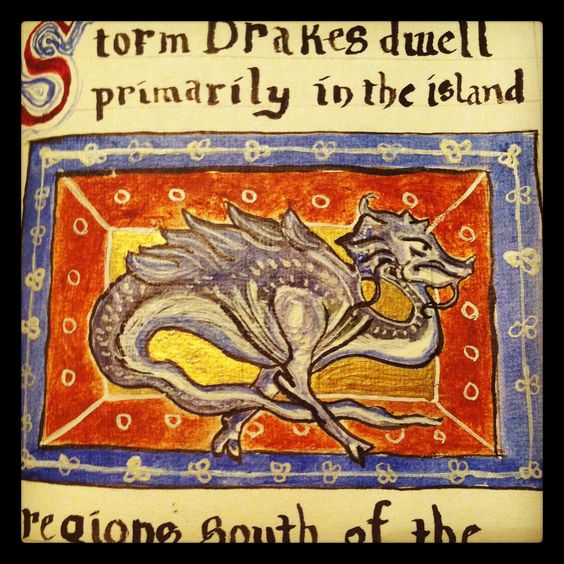 Storm Drakes dwell
primarily in the island
regions south of the